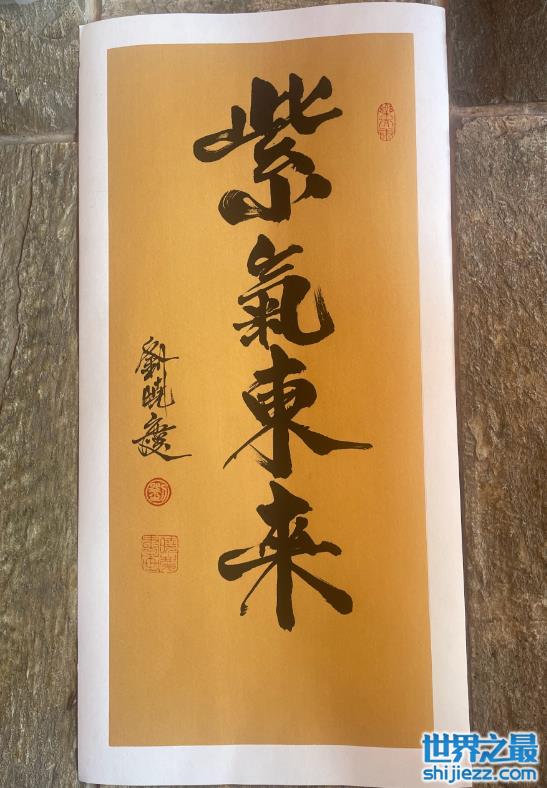 紫氣東来
劉曉慶
世界之最
shijiezz.com